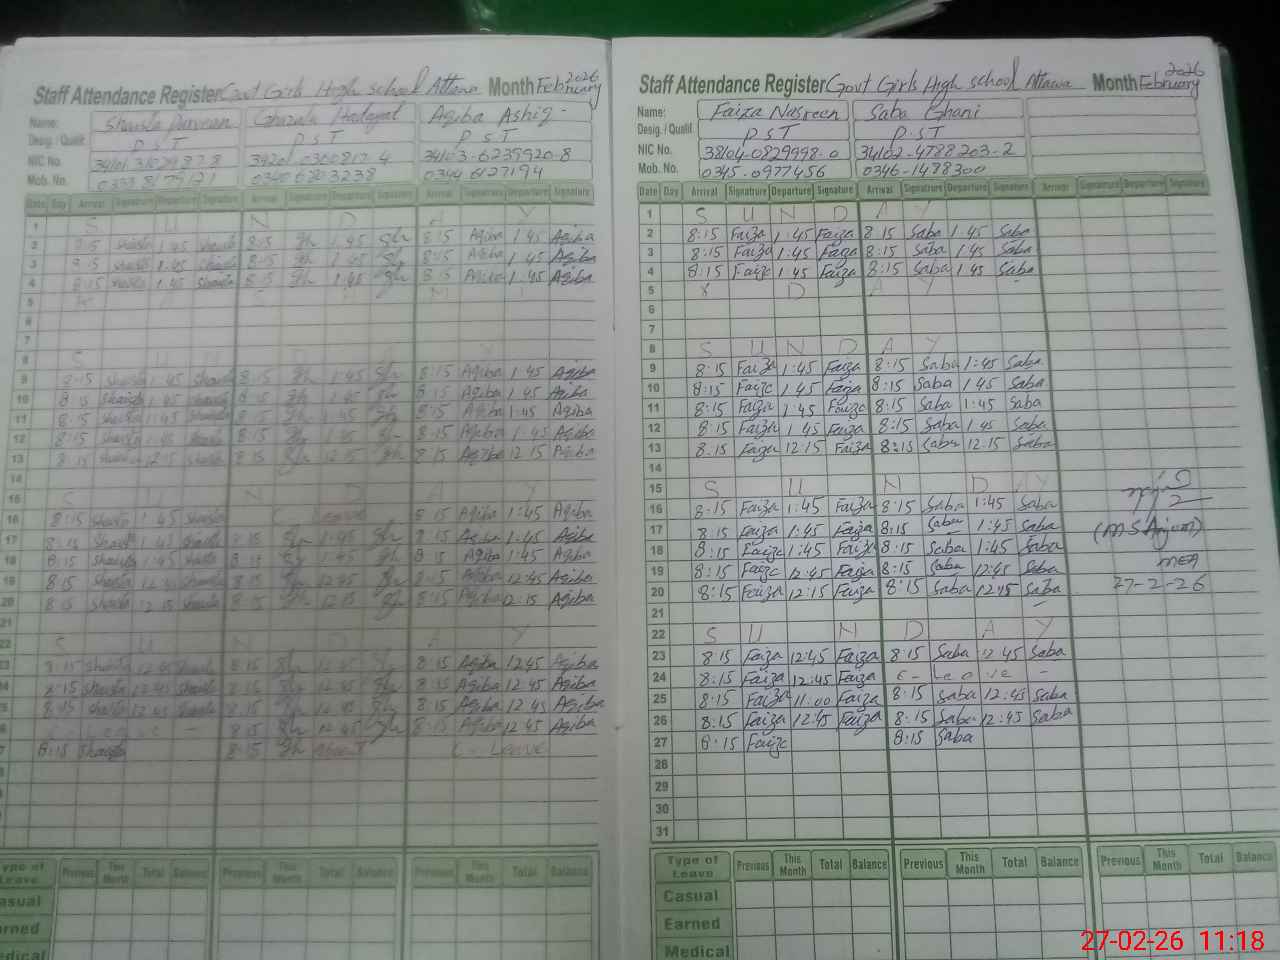 Staff Attendance Register Govt Girls High school Attowa Month February 2026
Name: Shaista Parveen Ghazala Hadayat Aqiba Ashiq
Desig. / Qualif. P S T P S T P S T
NIC No. 34103-6235920-8
Mob. No. 0340 6203238 0344 6127194
Date Day Arrival Signature Departure Signature Arrival Signature Departure Signature Arrival Signature Departure Signature
1 S U N D A Y
2 8:15 Shaista 1:45 Shaista 8:15 Gh 1:45 Gh 8:15 Aqiba 1:45 Aqiba
3 8:15 Shaista 1:45 Shaista 8:15 Gh 1:45 Gh 8:15 Aqiba 1:45 Aqiba
4 8:15 Shaista 1:45 Shaista 8:15 Gh 1:45 Gh 8:15 Aqiba 1:45 Aqiba
5
6
7
8 S U N D A Y
9 8:15 Shaista 1:45 Shaista 8:15 Gh 1:45 Gh 8:15 Aqiba 1:45 Aqiba
10 8:15 Shaista 1:45 Shaista 8:15 Gh 1:45 Gh 8:15 Aqiba 1:45 Aqiba
11 8:15 Shaista 1:45 Shaista 8:15 Gh 1:45 Gh 8:15 Aqiba 1:45 Aqiba
12 8:15 Shaista 1:45 Shaista 8:15 Gh 1:45 Gh 8:15 Aqiba 1:45 Aqiba
13 8:15 Shaista 12:15 Shaista 8:15 Gh 12:15 Gh 8:15 Aqiba 12:15 Aqiba
14
15 S U N D A Y
16 8:15 Shaista 1:45 Shaista Leave 8:15 Aqiba 1:45 Aqiba
17 8:15 Shaista 1:45 Shaista 8:15 Gh 1:45 Gh 8:15 Aqiba 1:45 Aqiba
18 8:15 Shaista 1:45 Shaista 8:15 Gh 1:45 Gh 8:15 Aqiba 1:45 Aqiba
19 8:15 Shaista 12:45 Shaista 8:15 Gh 12:45 Gh 8:15 Aqiba 12:45 Aqiba
20 8:15 Shaista 12:15 Shaista 8:15 Gh 12:15 Gh 8:15 Aqiba 12:15 Aqiba
21
22 S U N D A Y
23 8:15 Shaista 12:45 Shaista 8:15 Gh 12:45 Gh 8:15 Aqiba 12:45 Aqiba
8:15 Shaista 12:45 Shaista 8:15 Gh 12:45 Gh 8:15 Aqiba 12:45 Aqiba
8:15 Shaista 12:45 Shaista 8:15 Gh 12:45 Gh 8:15 Aqiba 12:45 Aqiba
Leave - 8:15 Gh 12:45 Gh 8:15 Aqiba 12:45 Aqiba
8:15 Shaista 8:15 Gh Absent C - Leave
Type of Leave Previous This Month Total Balance Previous This Month Total Balance Previous This Month Total Balance
Casual
Earned
Medical
Staff Attendance Register Govt Girls High school Attowa Month February 2026
Name: Faiza Nasreen Saba Ghani
Desig. / Qualif. P S T P S T
NIC No. 38104-0829998-0 34102-4788203-2
Mob. No. 0345-0977456 0346-1478300
Date Day Arrival Signature Departure Signature Arrival Signature Departure Signature Arrival Signature Departure Signature
1 S U N D A Y
2 8:15 Faiza 1:45 Faiza 8:15 Saba 1:45 Saba
3 8:15 Faiza 1:45 Faiza 8:15 Saba 1:45 Saba
4 8:15 Faiza 1:45 Faiza 8:15 Saba 1:45 Saba
5 K D A Y
6
7
8 S U N D A Y
9 8:15 Faiza 1:45 Faiza 8:15 Saba 1:45 Saba
10 8:15 Faiza 1:45 Faiza 8:15 Saba 1:45 Saba
11 8:15 Faiza 1:45 Faiza 8:15 Saba 1:45 Saba
12 8:15 Faiza 1:45 Faiza 8:15 Saba 1:45 Saba
13 8:15 Faiza 12:15 Faiza 8:15 Saba 12:15 Saba
14
15 S U N D A Y
16 8:15 Faiza 1:45 Faiza 8:15 Saba 1:45 Saba
17 8:15 Faiza 1:45 Faiza 8:15 Saba 1:45 Saba (M S Anjum)
18 8:15 Faiza 1:45 Faiza 8:15 Saba 1:45 Saba
19 8:15 Faiza 12:45 Faiza 8:15 Saba 12:45 Saba MEA
20 8:15 Faiza 12:15 Faiza 8:15 Saba 12:45 Saba 27-2-26
21
22 S U N D A Y
23 8:15 Faiza 12:45 Faiza 8:15 Saba 12:45 Saba
24 8:15 Faiza 12:45 Faiza C - Leave -
25 8:15 Faiza 11:00 Faiza 8:15 Saba 12:45 Saba
26 8:15 Faiza 12:45 Faiza 8:15 Saba 12:45 Saba
27 8:15 Faiza 8:15 Saba
28
29
30
31
Type of Leave Previous This Month Total Balance Previous This Month Total Balance Previous This Month Total Balance
Casual
Earned
Medical
27-02-26 11:18